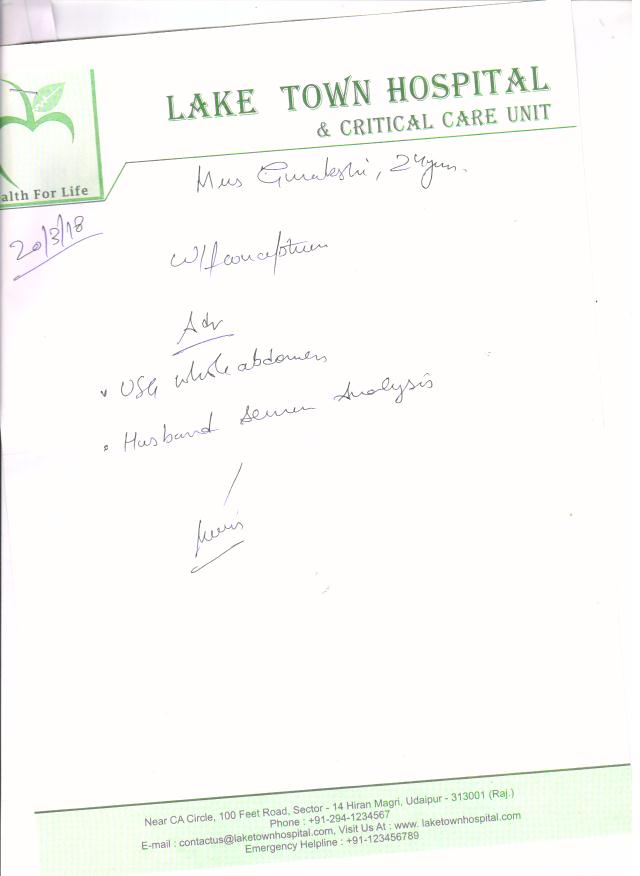 LAKE TOWN HOSPITAL
& CRITICAL CARE UNIT
alth For Life
Mrs , 24yrs.
20/3/18
W/f conception
Adv
USG whole abdomen
Husband semen Analysis
Near CA Circle, 100 Feet Road, Sector - 14 Hiran Magri, Udaipur - 313001 (Raj.)
Phone : +91-294-1234567
E-mail : contactus@laketownhospital.com, Visit Us At : www. laketownhospital.com
Emergency Helpline : +91-123456789